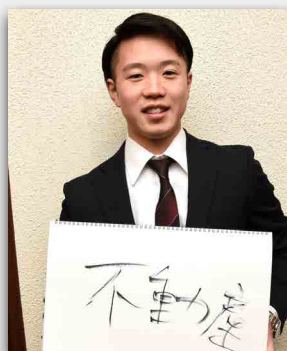 不動産